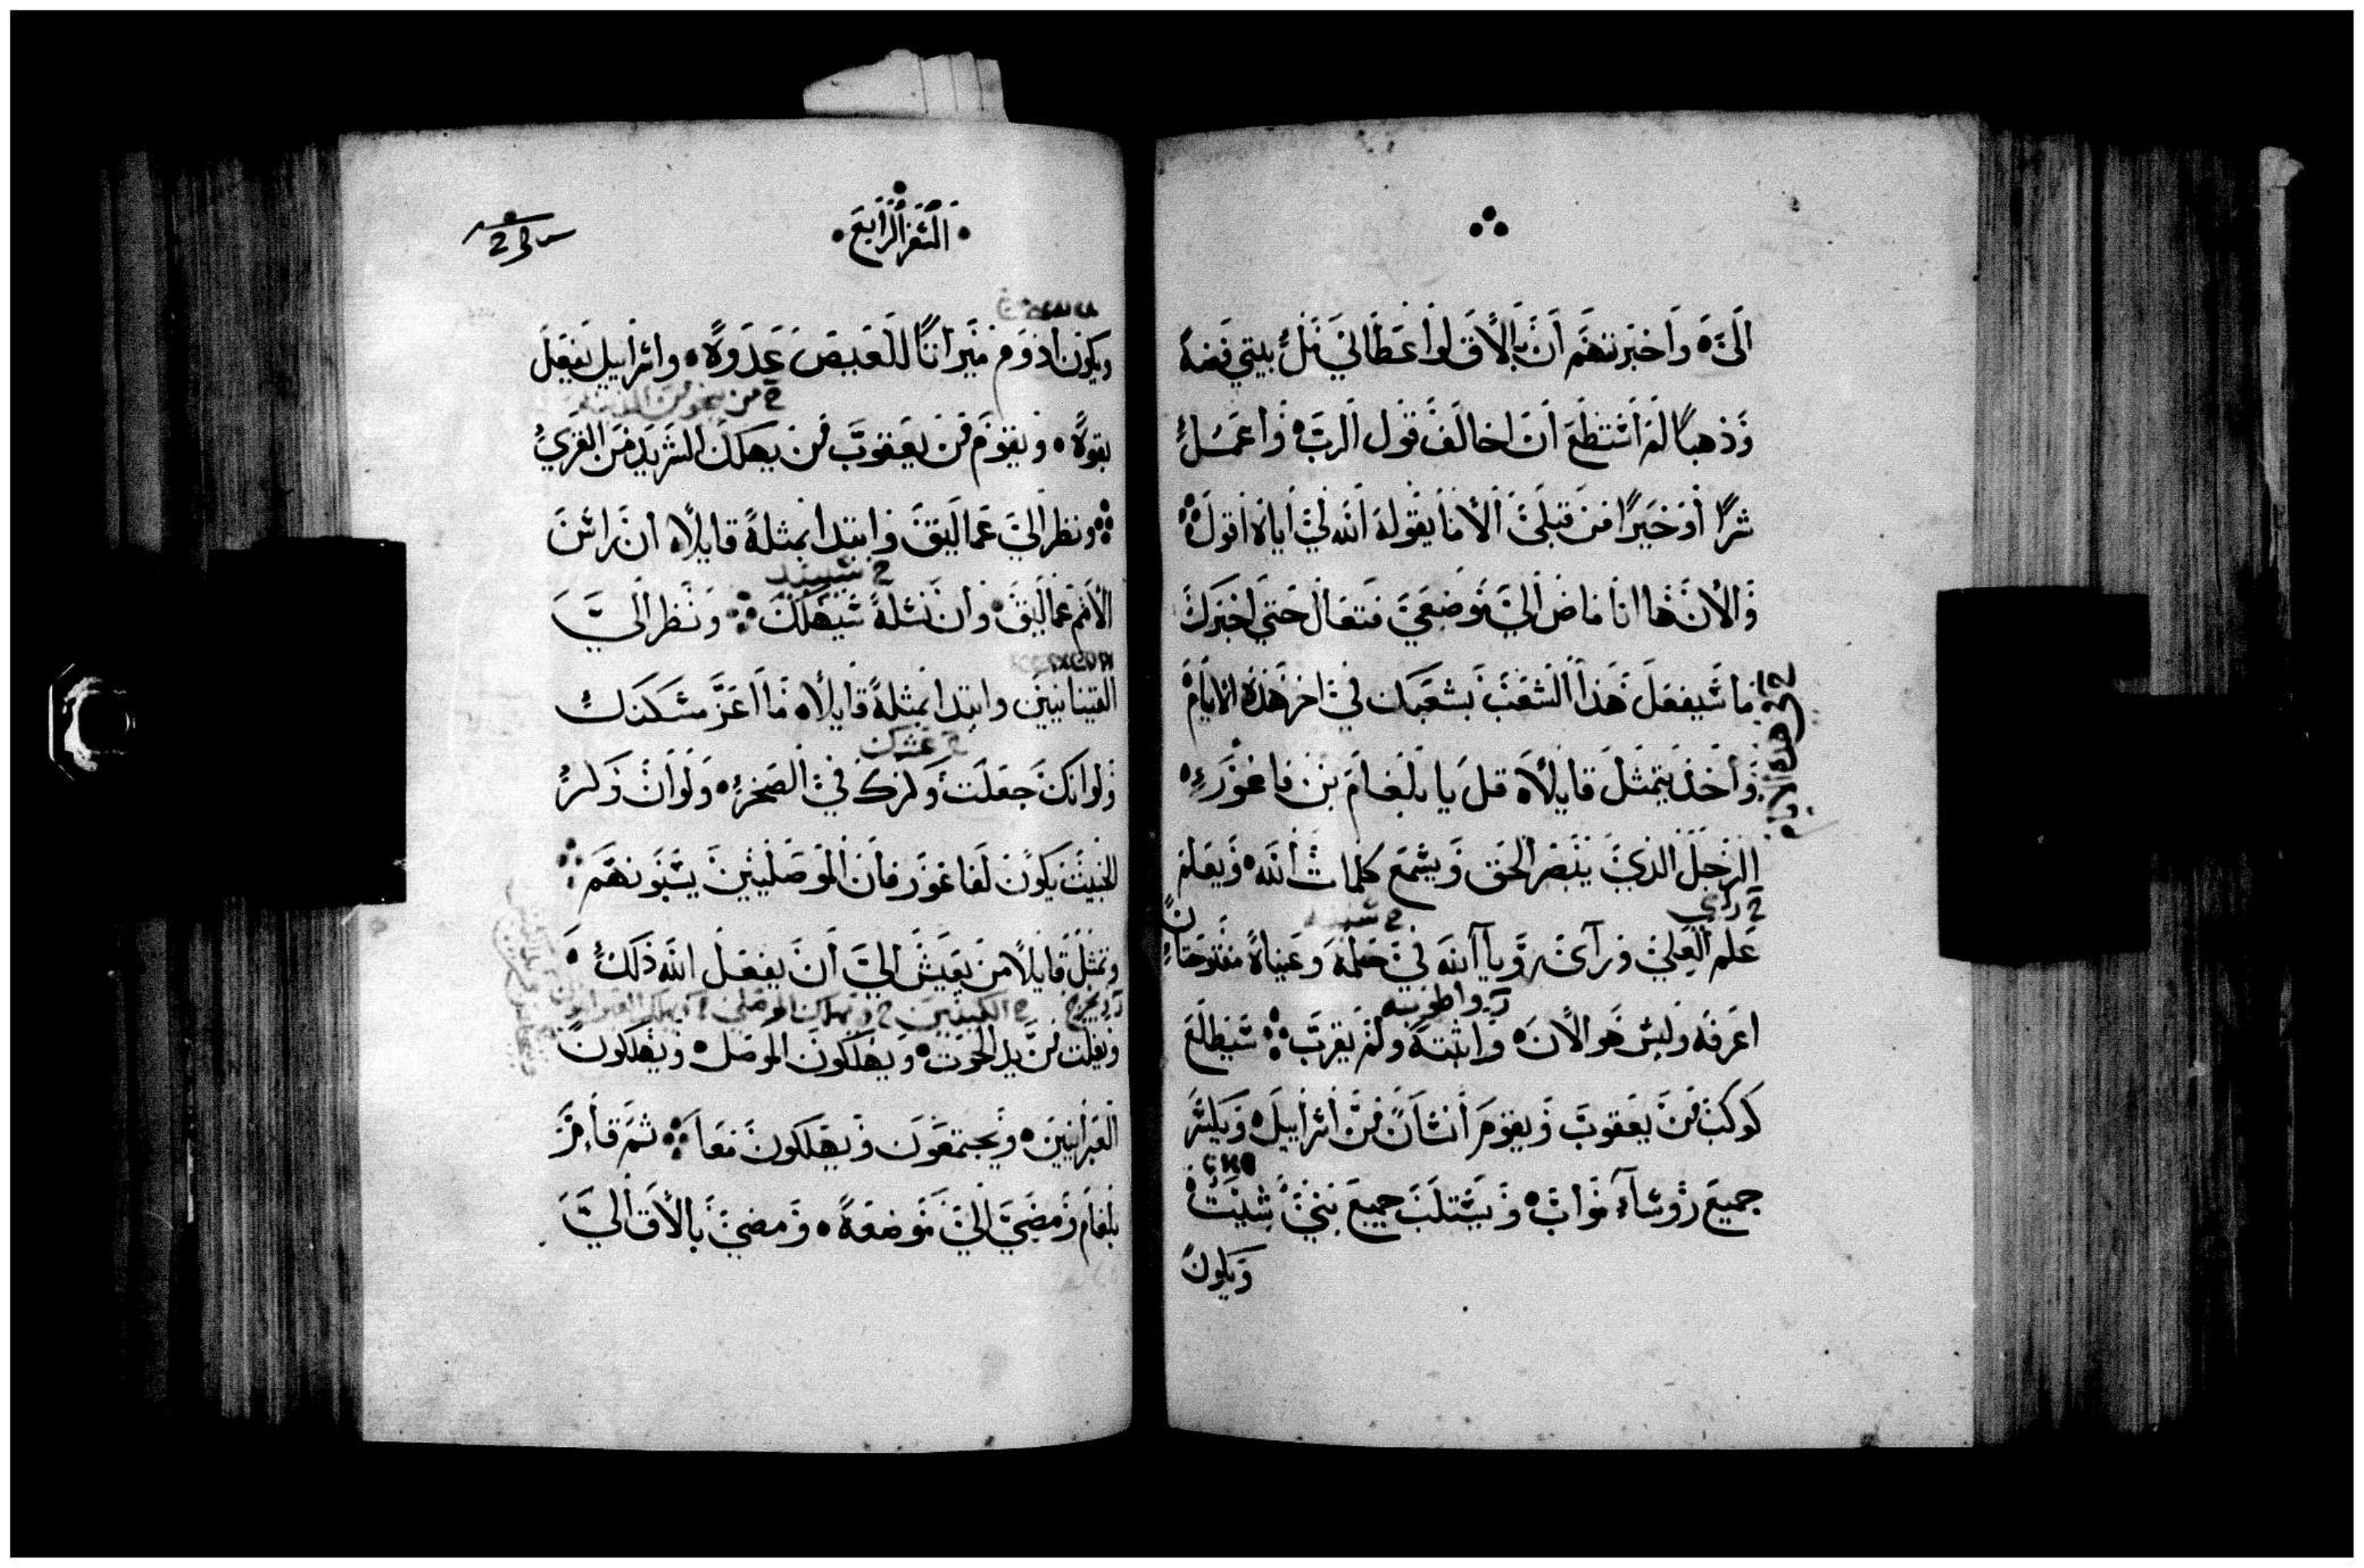 الىّ ه واخبرتهم ان بالاق لو اعطاني مل بيتي فضة
وذهبا لم استطع ان اخالف قول الرب ه واعمل
شرا او خيرا من قبلي الا ما يقوله الله لي اياه اقول
والان ها انا ماض الي موضعي فتعال حتي اخبرك
ما سيفعل هذا الشعب بشعبك في اخر هذه الايام
واخذ يتمثل قايلا ه قل يا بلعام بن فاغور ه
الرجل الذي ينبصر الحق ويسمع كلمات الله ه ويعلم
علم العلي وراي رويا الله في حلمه وعيناه مفتوحتان
اعرفه وليس هو الان ه واثبته ولم يقرب سيطلع
كوكب من يعقوب ويقوم انسان من اسراييل ه ويكسر
جميع روسآء مواب ه ويستلب جميع بني شيت ه
ويكون
السفر الرابع
ويكون ادوم ميراثا للعيص عدوه ه واسراييل يفعل
بقوه ه ويقوم من يعقوب من يهلك الشريد من القري
ونظر الي عماليق وابتدا بمثله قايلا ه ان راس
الامم عماليق ه وان نسله سيهلك ونظر الي
القينانيين وابتدا بمثله قايلا ه ما اعز مسكنك
ولو انك جعلت وكرك في الصخره ه ولو ان وكر
الخبيث يكون لفاغور فان الموصليين يسبونهم
وتمثل قايلا من يعيش الي ان يفعل الله ذلك ه
ويفلت من يد الحوت ه ويهلكون الموصل ه ويهلكون
العبرانيين ه ويجتمعون ويهلكون معا ثم قام
بلعام ومضي الي موضعه ه ومضي بالاق الي